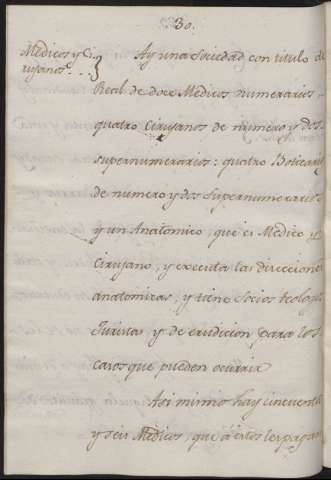 30.
Medicos y Ci
rujanos...}
Ay una Sociedad con titulo de
Real de doce Medicos numerarios
quatro Cirujanos de numero y dos
supernumerarios: quatro Boticarios
de numero y dos supernumerarios
y un Anatomico, que es Medico y
Cirujano, y executa las direcciones
anatomicas, y tiene Socios teologos
Juristas y de erudicion, para los
casos que pueden ocurrir
Asi mismo hay cincuenta
y seis Medicos, que á estos les pagan